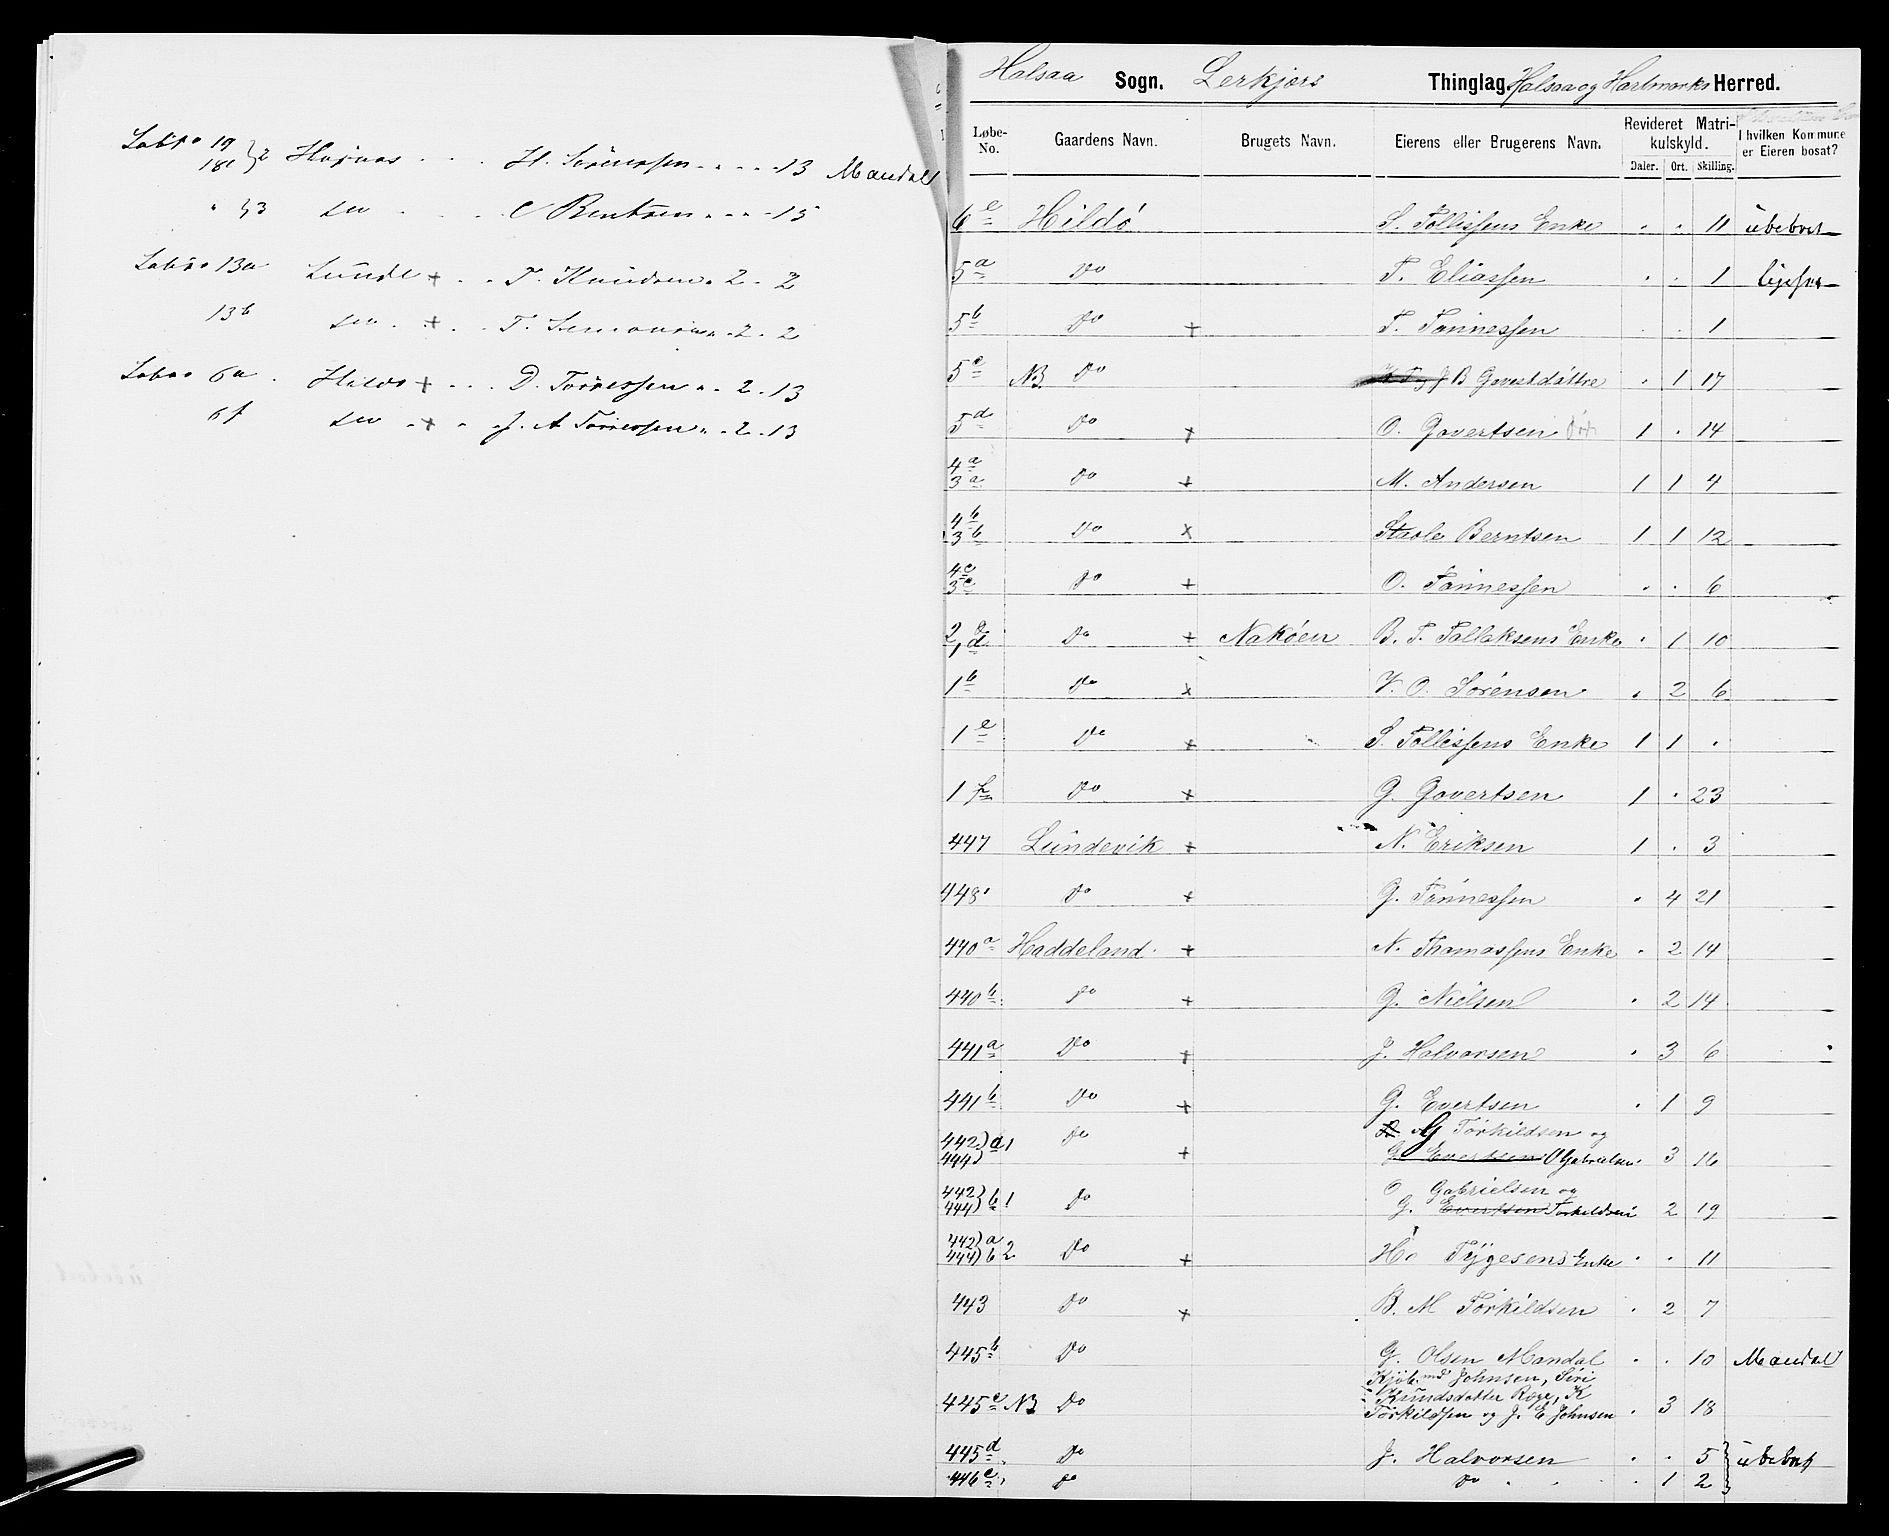 Löbno 19
18c } 2 Hogaas . . . H. Sörenssen . . . . 13 Mandal
" } 3 do . . . C Berntsen . . . . 15
Löbno 13a Lunde + . . T. Knudsen . 2 . 2
13b do . + . . T. Simonsen . 2 . 2
Löbno 6a . Hildö + . . . D. Tönnessen . . 2 . 13
6f do . + . . J. A Tönnessen . . 2 . 13
Halsaa Sogn. Lerkjærs Thinglag Halsaa og Hartmarks Herred.
Løbe-No. Gaardens Navn. Brugets Navn. Eierens eller Brugerens Navn. Revideret Matrikulskyld. I hvilken Kommune er Eieren bosat?
Daler. Ort. Skilling.
6e Hildö S. Tollissens Enke . . 11 übeboet
5a Do T. Eliassen . . 1
5b Do + T. Tönnessen . . 1
5c NB Do J B Govertsdöttre . 1 17
5d Do + O. Govertsen 1 . 14
4a
3a Do + M. Andersen 1 1 4
4b
3b Do x Staale Berntsen 1 1 12
4c
3c Do + O. Tönnessen . . 6
2, 1d Do + Naköen B. T. Tallaksens Enke . 1 10
1b Do x V. O. Sörensen . 2 6
1e Do + S. Tollissens Enke 1 1 .
1f Do + G. Govertsen 1 . 23
447 Lündevik + N. Eriksen 1 . 3
448 Do + G. Tönnessen . 4 21
440a Haddeland + N. Thomassens Enke . 2 14
440b Do + G. Nielsen . 2 14
441a Do + J. Halvorsen . 3 6
441b Do + G. Evertsen . 1 9
442) a1 Do G Torkildsen og
444) + G. Evertsen O Gabrielsen . 3 16
442) b1 Do O Gabrielsen og
444) G. Evertsen Torkildsen 2 19
442) a
444) b 2 Do + H. Tÿgesens Enke . . 11
443 Do + B. M Torkildsen . 2 7
445b Do G. Olsen Mandal . . 10 Mandal
Kjöbmd Johnsen, Siri
445c NB Do Knüdsdatter Roge, K
Torkildsen og J. E. Johnsen . 3 18
445d Do J. Halvorsen . . 5 } übeboet
446c Do Do . . . 1 2 }